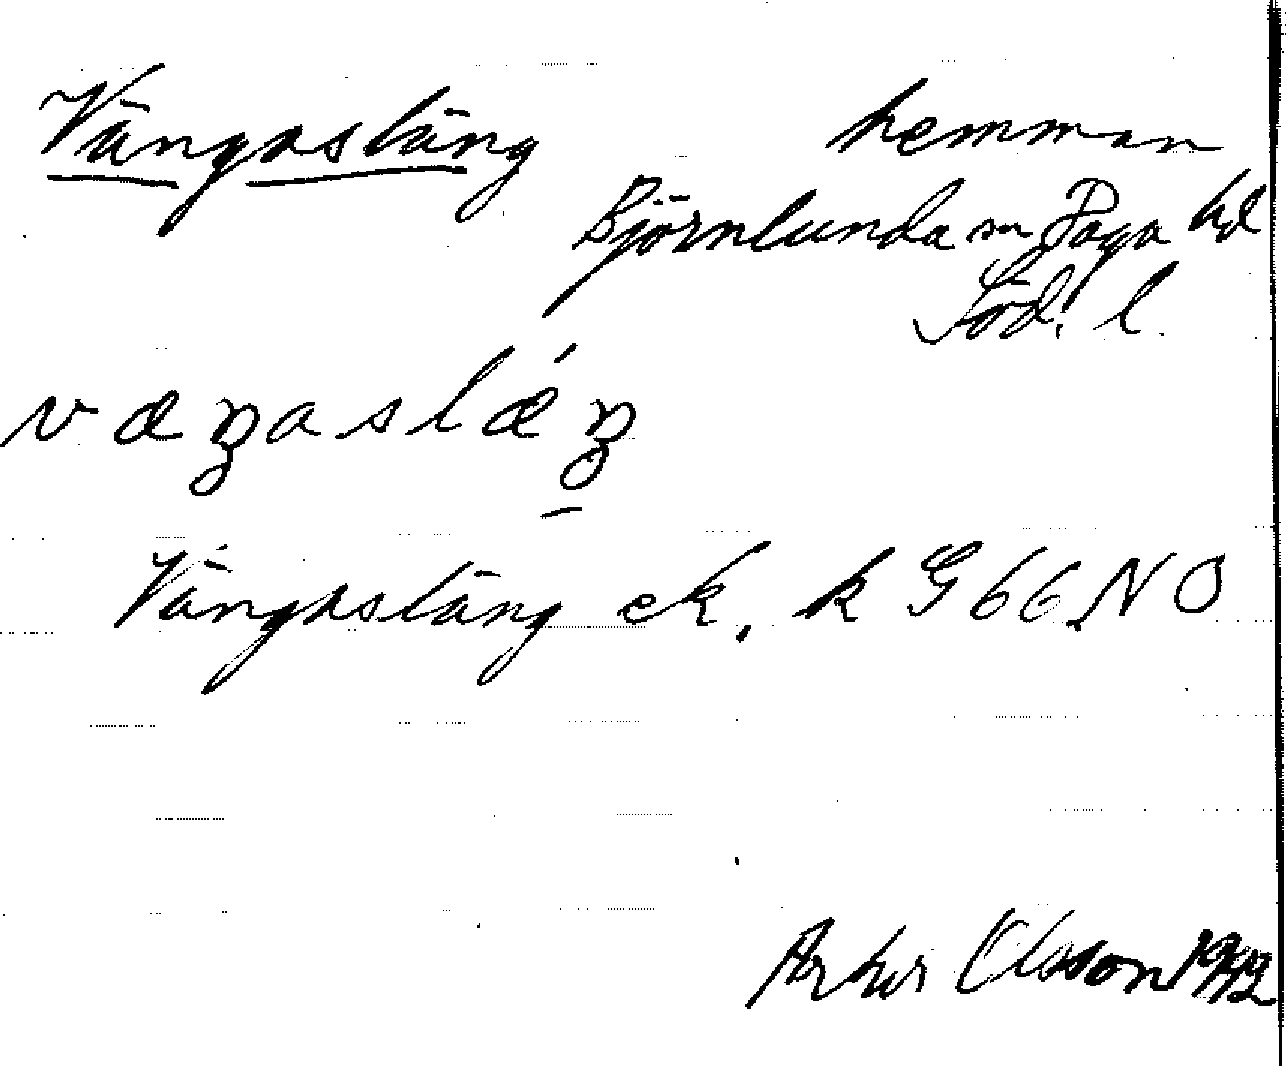 Vängasläng hemman
Björnlunda sn Daga hd
Söd. l.
væŋaslǽŋ
Vängasläng ek. k G66NO
Olsson 1942